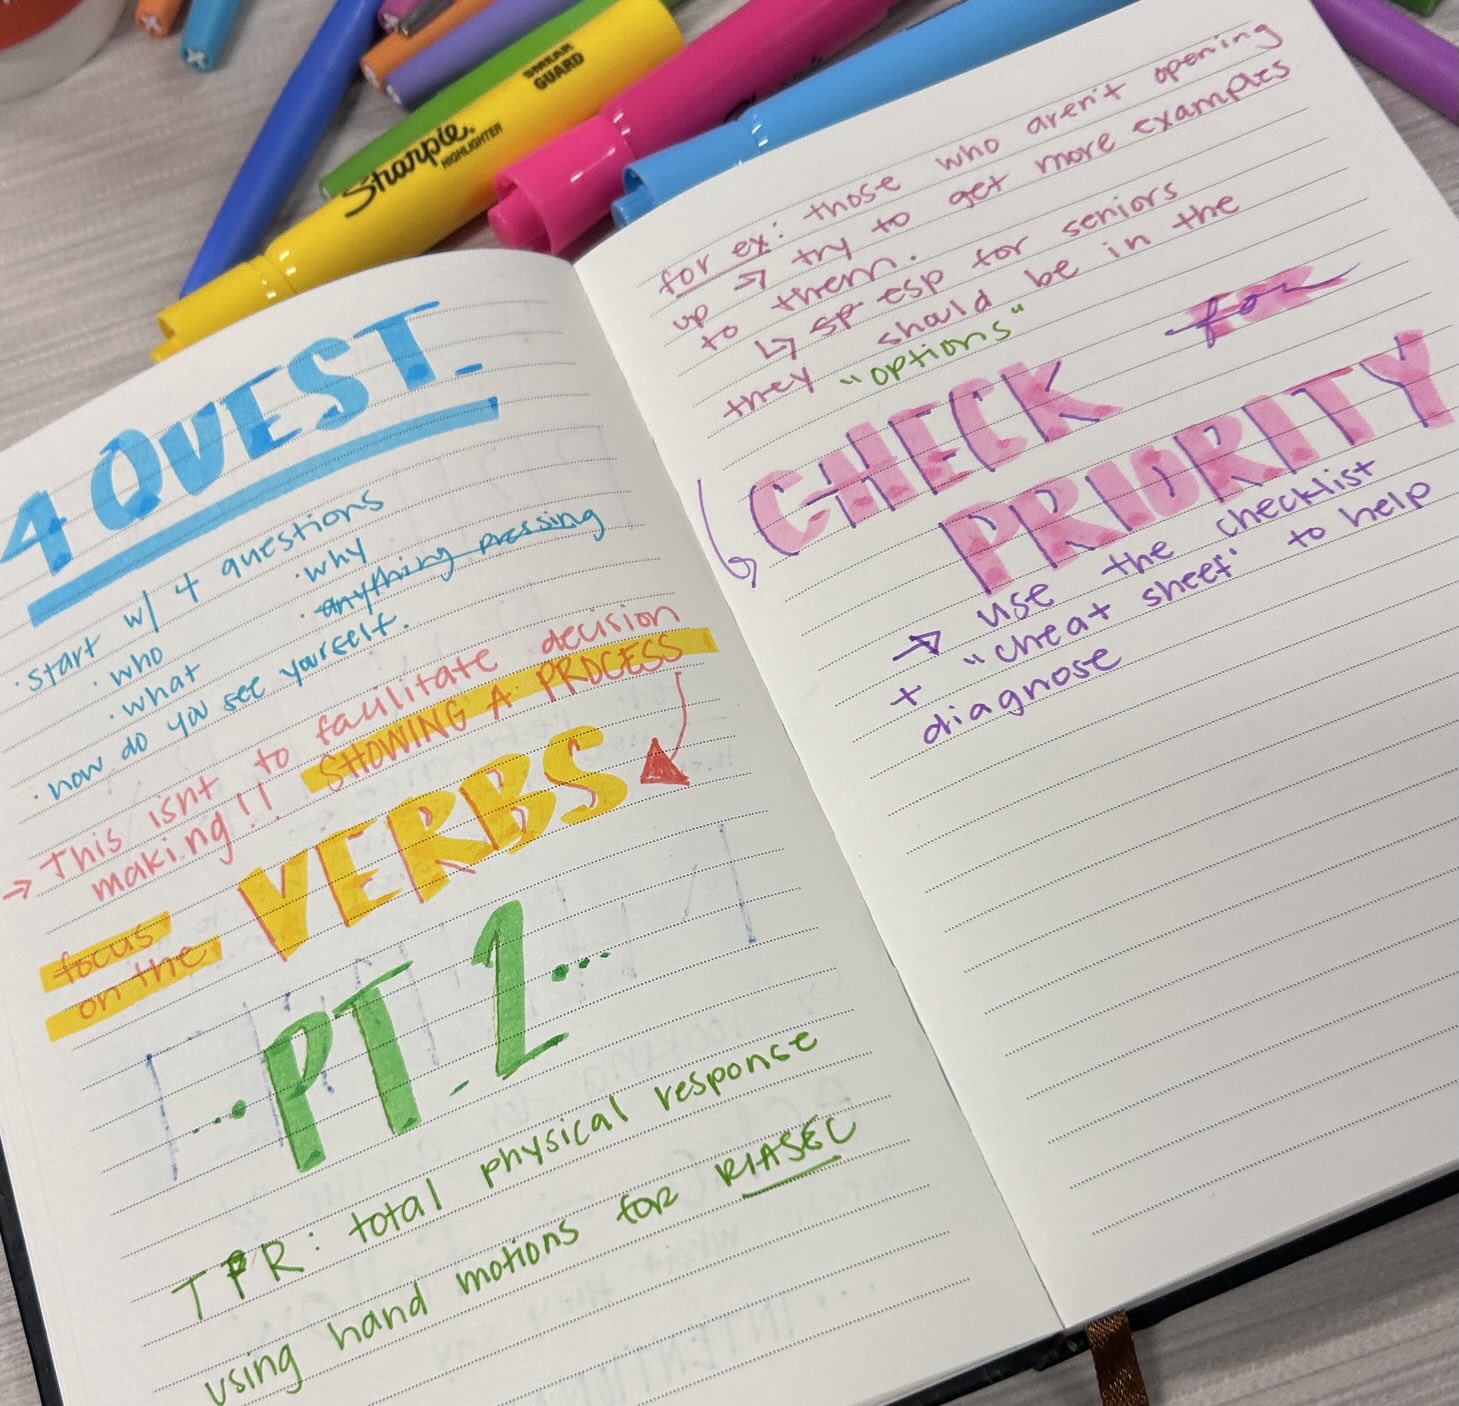 SMEAR
GUARD
Sharpie.
HIGHLIGHTER
4 QUEST.
· start w/ 4 questions
· who
· why
· what
· anything pressing
· how do you see yourself.
→ This isnt to facilitate decision
making!! SHOWING A PROCESS
focus
on the
VERBS
...PT. 2...
TPR: total physical response
using hand motions for RIASEC
for ex: those who aren't opening
up → try to get more examples
to them.
↳ sp esp for seniors
they should be in the
"options"
CHECK for
PRIORITY
→ use the checklist
+ "cheat sheet" to help
diagnose